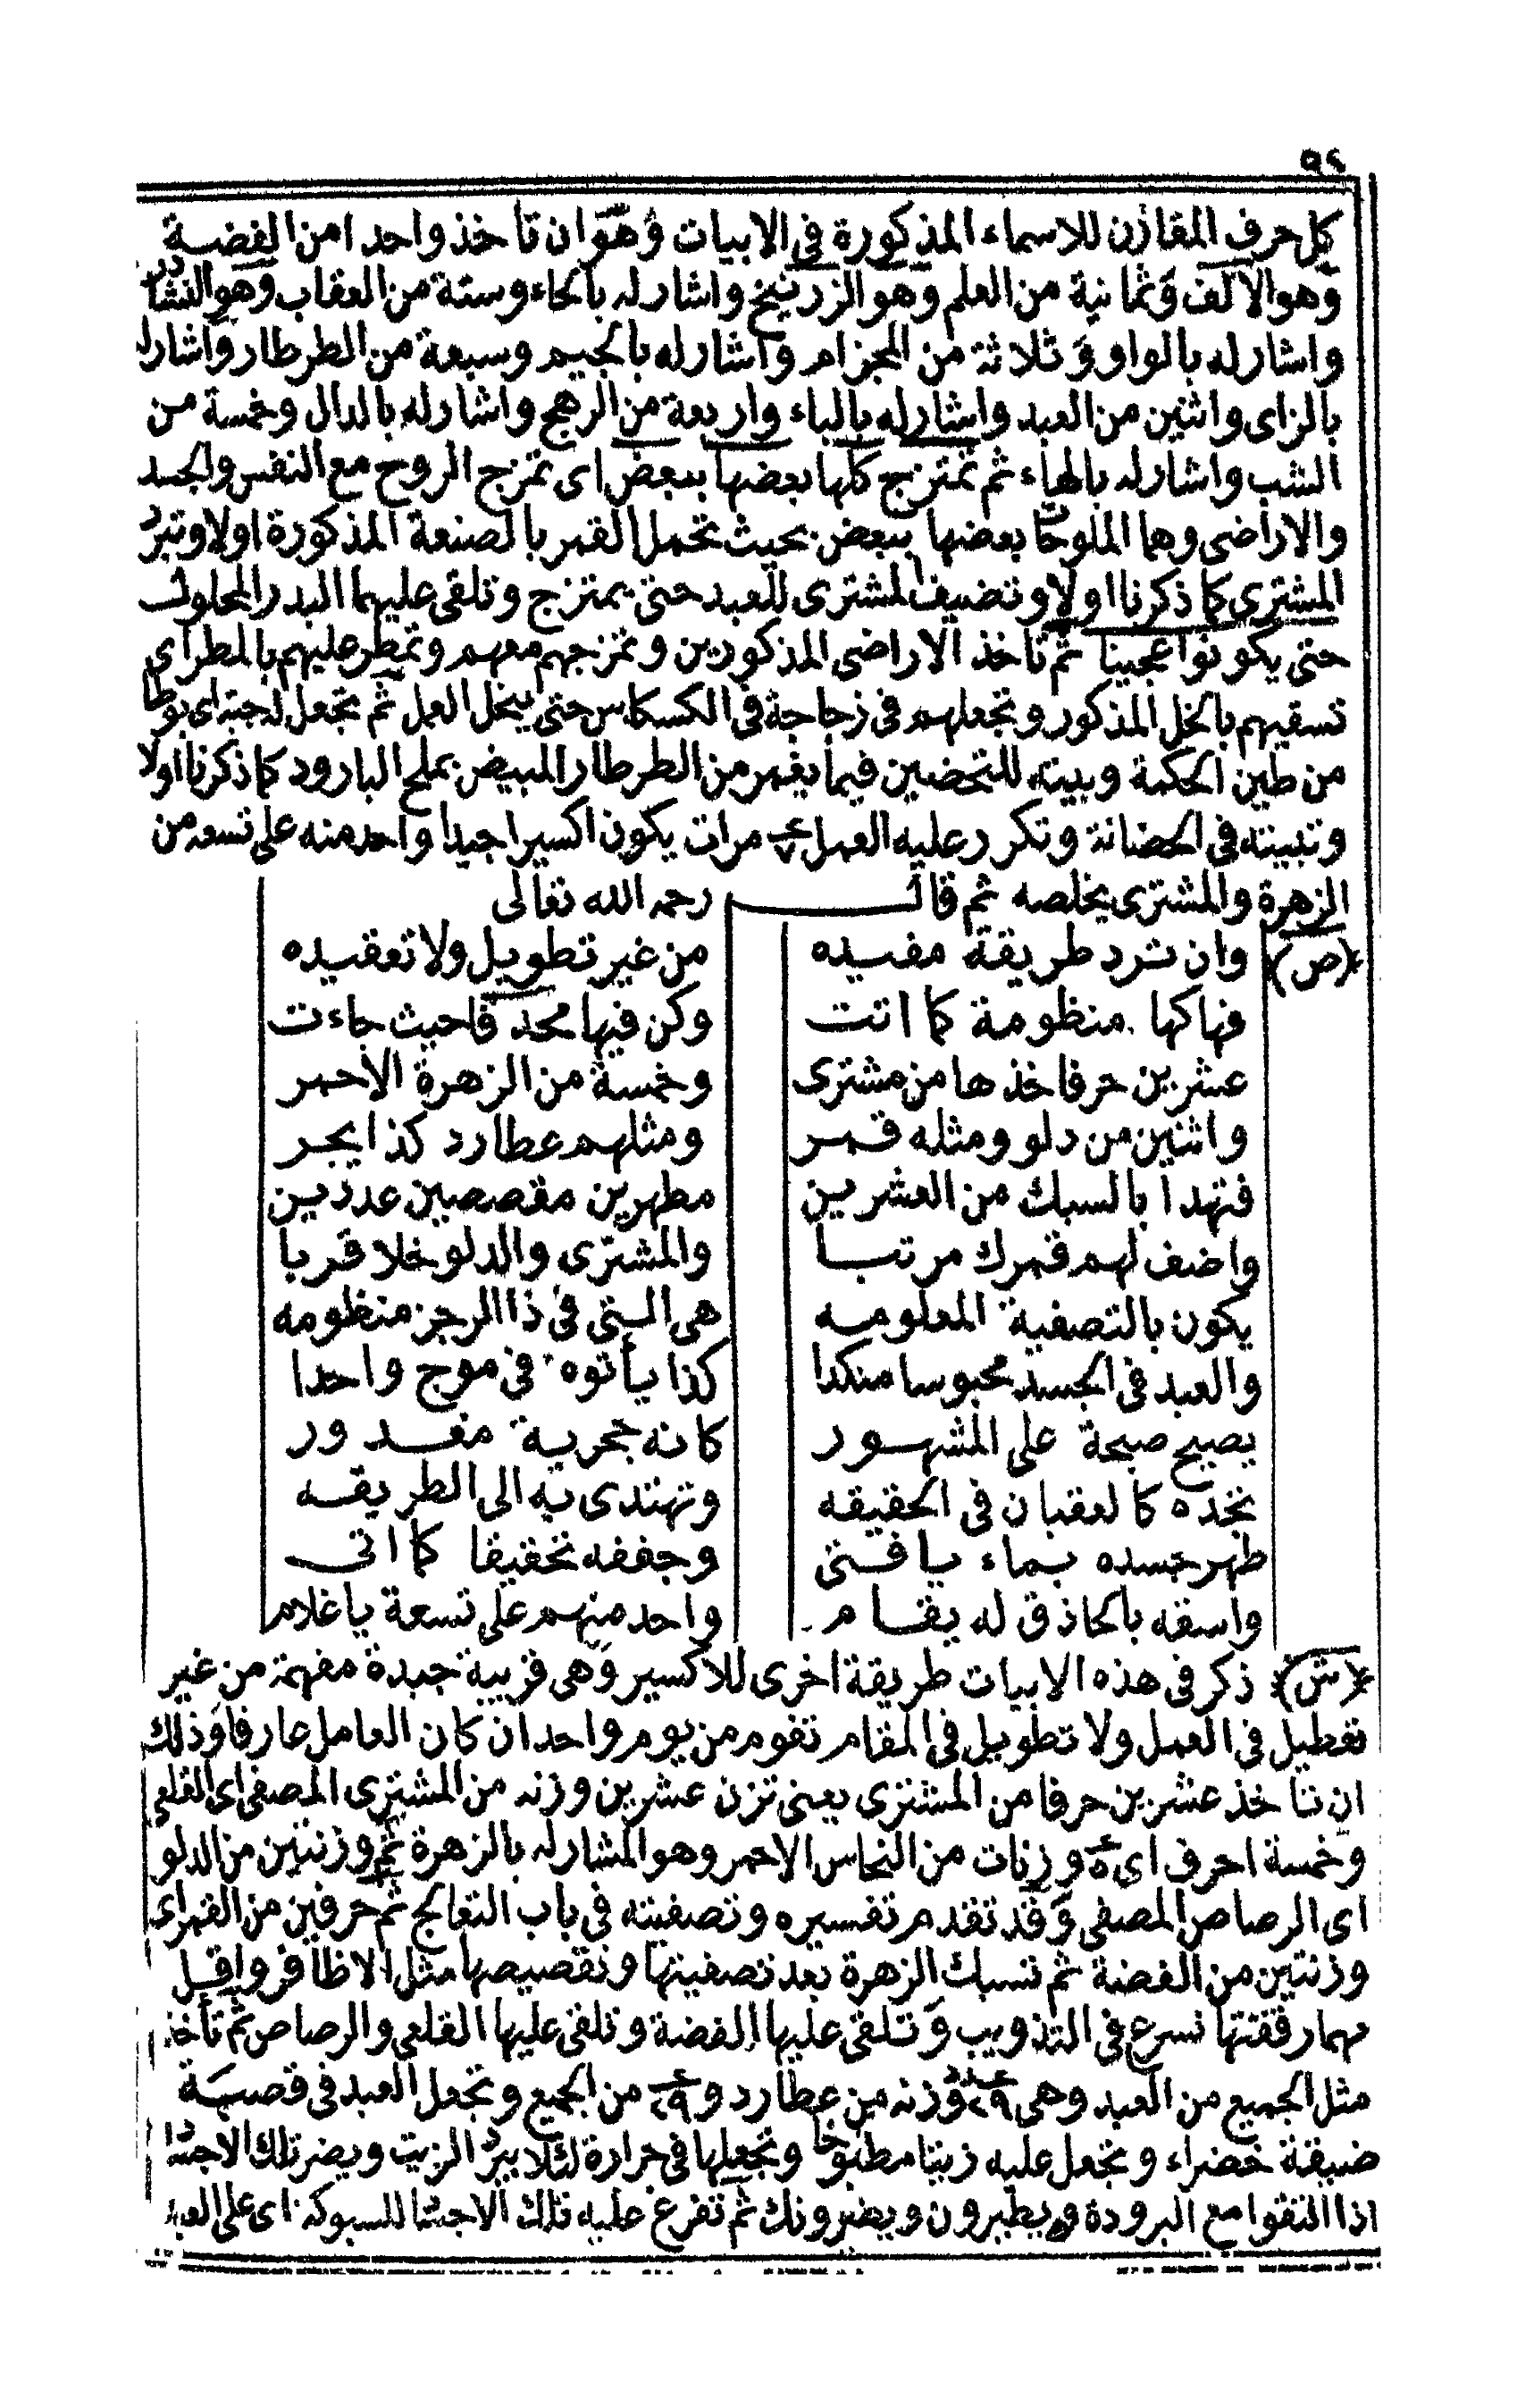 ٩٤
كل حرف المقاؤن للاسماء المذكورة فى الابيات وهو ان تأخذ واحدا من الفضة
وهو الالف وثمانية من العلم وهو الزرنيخ واشار له بالحاء وستة من العقاب وهو النشادر
واشار له بالواو وثلاثة من المجزام واشار له بالجيم وسبعة من الطرطار واشار له
بالزاى واثنين من العبد واشار له بالباء واربعة من الرهج واشار له بالدال وخمسة من
الشب واشار له بالهاء ثم تمتزج كلها بعضها ببعض اى تمزج الروح مع النفس والجسد
والاراضى وهما الملوحات بعضها ببعض بحيث تحمل القمر بالصنعة المذكورة اولا وتبرد
المشترى كما ذكرنا اولا وتضيف المشترى للعبد حتى يمتزج وتلقى عليهما البدر المحلول
حتى يكونوا عجينا ثم تأخذ الاراضى المذكورين وتمزجهم معهم وتمطر عليهم بالمطر اى
تسقيهم بالخل المذكور وتجعلهم فى زجاجة فى الكسكاس حتى ينحل العمل ثم تجعل له جبة اى بوطا
من طين الحكمة وبيته للتحضين فيما يغمر من الطرطار المبيض بملح البارود كما ذكرنا اولا
وتبيته فى الحضانة وتكرر عليه العمل ٧ مرات يكون اكسيرا جيدا واحد منه على تسعة من
الزهرة والمشترى يخلصه ثم قال رحمه الله تعالى
(ص) وان ترد طريقة مفيده من غير تطويل ولا تعقيده
فهاكها منظومة كما اتت وكن فيها محدقا حيث جاءت
عشرين حرفا خذها من مشترى وخمسة من الزهرة الاحمر
واثنين من دلو ومثله قمر ومثلهم عطارد كذا يجر
فتهدا بالسبك من العشرين مطهرين مقصصين عددين
واضف لهم قمرك مرتبا والمشترى والدلو خلا قربا
يكون بالتصفية المعلومه هى التى فى ذا الرجز منظومه
والعبد فى الجسد محبوسا منكدا كذا يأتوه فى موج واحدا
يصيح صيحة على المشهور كانه جحرية مغدور
تجده كالعقبان فى الحقيقه وتهتدى به الى الطريقه
طهر جسده بماء يا فتى وجففه تخفيفا كما اتى
واسقه بالحاذق له يقام واحد منهم على تسعة يا غلام
(ش) ذكر فى هذه الابيات طريقة اخرى للاكسير وهى قريبة جيدة مفهمة من غير
تعطيل فى العمل ولا تطويل فى المقام تقوم من يوم واحد ان كان العامل عارفا وذلك
ان تأخذ عشرين حرفا من المشترى يعنى تزن عشرين وزنه من المشترى المصفى اى القلعى
وخمسة احرف اى ٥ وزنات من النحاس الاحمر وهو المشار له بالزهرة ثم وزنتين من الدلو
اى الرصاص المصفى وقد تقدم تفسيره وتصفيته فى باب التعالج ثم حرفين من القمر اى
وزنتين من الفضة ثم تسبك الزهرة بعد تصفيتها وتقصيصها مثل الاظافر واقل
مهما رققتها تسرع فى التذويب وتلقى عليها الفضة وتلقى عليها القلعى والرصاص ثم تأخذ
مثل الجميع من العبد وهى ٢٩ وزنه من عطارد و ٢٩ من الجميع وتجعل العبد فى قصبة
ضيقة خضراء وتجعل عليه زيتا مطبوخا وتجعلها فى حرارة لئلا يبرد الزيت ويضر تلك الاجساد
اذا التقوا مع البرودة ويطيرون ويضرونك ثم تفرغ عليه تلك الاجساد المسبوكة اى على العبد